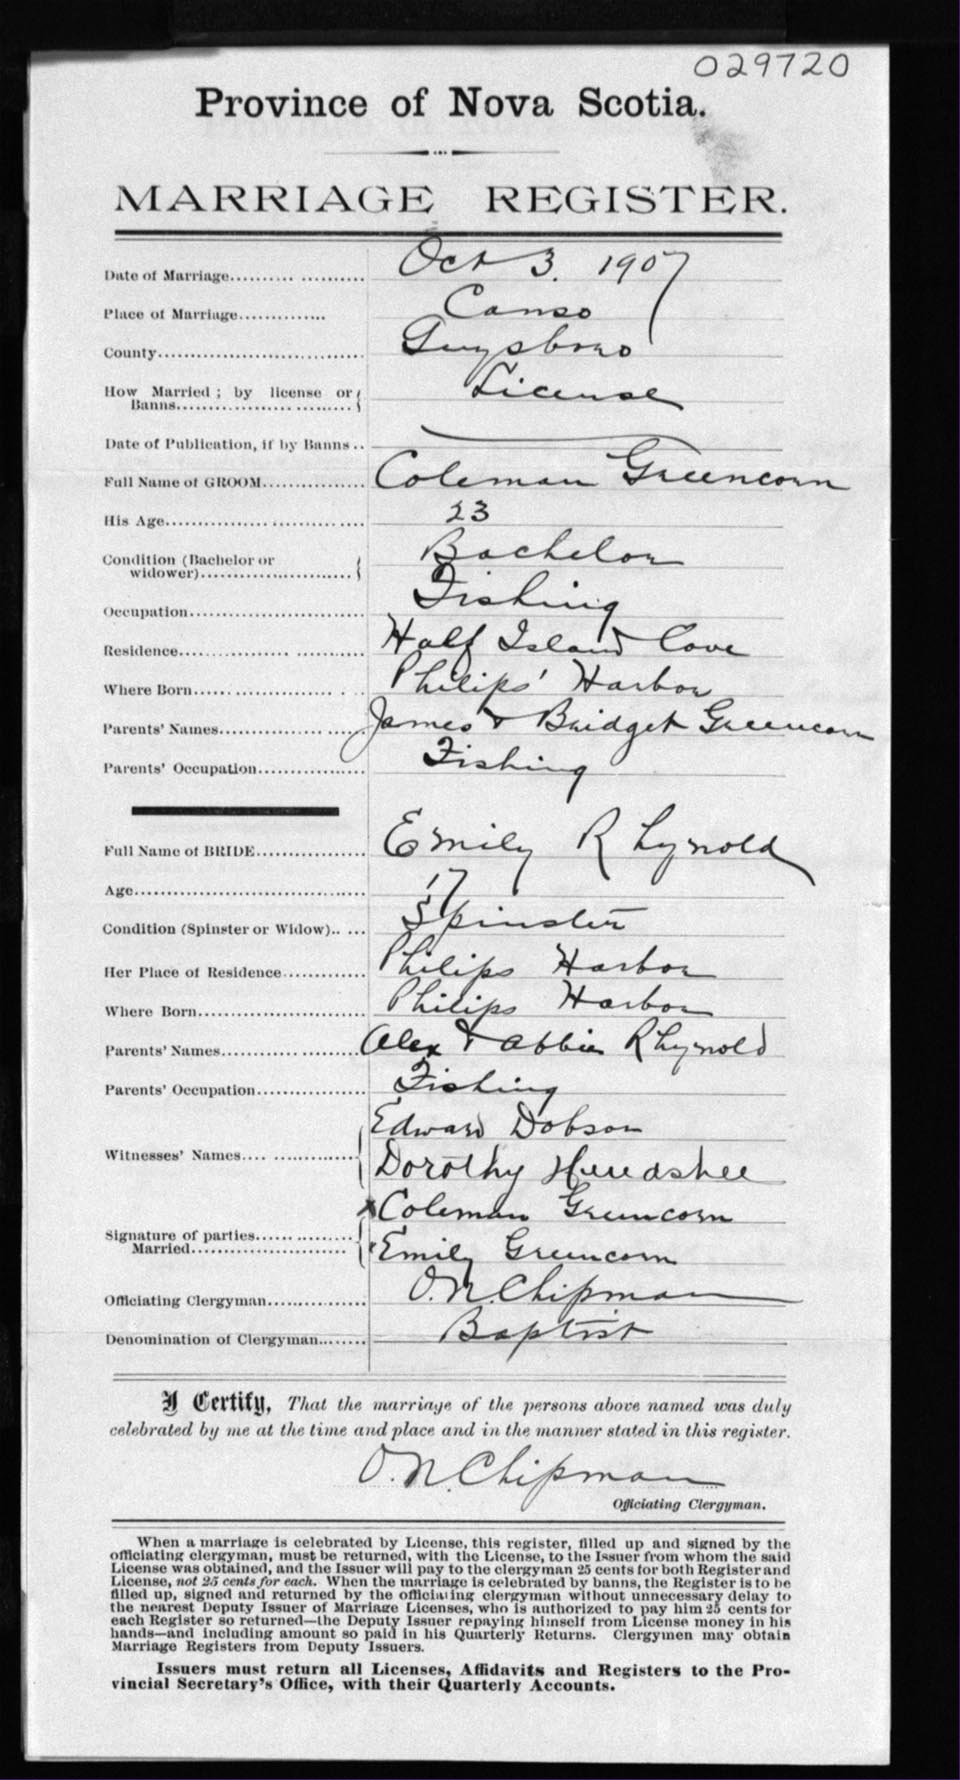 029720
Province of Nova Scotia.
MARRIAGE REGISTER.
Date of Marriage Oct 3. 1907
Place of Marriage Canso
County Guysboro
How Married; by license or Banns License
Date of Publication, if by Banns
Full Name of GROOM Coleman Greencorn
His Age 23
Condition (Bachelor or widower) Bachelor
Occupation Fishing
Residence Half Island Cove
Where Born Philips' Harbor
Parents' Names James & Bridget Greencorn
Parents' Occupation Fishing
Full Name of BRIDE Emily Rhynold
Age 17
Condition (Spinster or Widow) Spinster
Her Place of Residence Philips Harbor
Where Born Philips Harbor
Parents' Names Alex & Abbie Rhynold
Parents' Occupation Fishing
Witnesses' Names Edward Dobson
Dorothy
Signature of parties Married Coleman Greencorn
Emily Greencorn
Officiating Clergyman O. N. Chipman
Denomination of Clergyman Baptist
I Certify, That the marriage of the persons above named was duly
celebrated by me at the time and place and in the manner stated in this register.
O. N. Chipman
Officiating Clergyman.
When a marriage is celebrated by License, this register, filled up and signed by the
officiating clergyman, must be returned, with the License, to the Issuer from whom the said
License was obtained, and the Issuer will pay to the clergyman 25 cents for both Register and
License, not 25 cents for each. When the marriage is celebrated by banns, the Register is to be
filled up, signed and returned by the officiating clergyman without unnecessary delay to
the nearest Deputy Issuer of Marriage Licenses, who is authorized to pay him 25 cents for
each Register so returned—the Deputy Issuer repaying himself from License money in his
hands—and including amount so paid in his Quarterly Returns. Clergymen may obtain
Marriage Registers from Deputy Issuers.
Issuers must return all Licenses, Affidavits and Registers to the Pro-
vincial Secretary's Office, with their Quarterly Accounts.